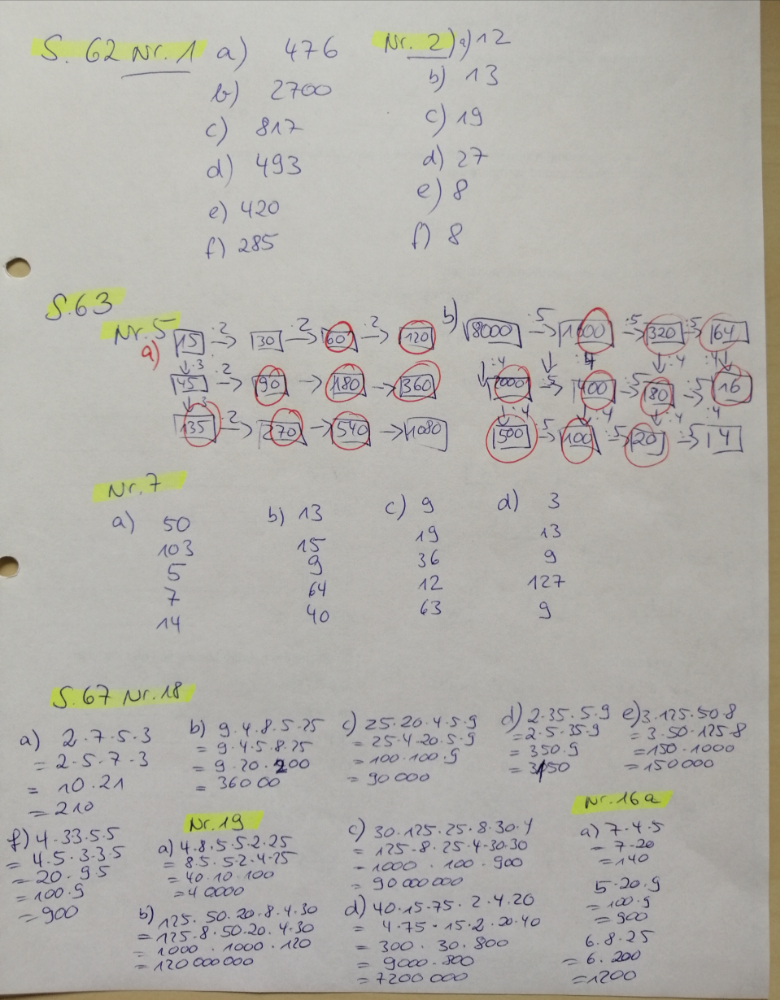 S. 62 Nr. 1 a) 476
b) 2700
c) 817
d) 493
e) 420
f) 285
Nr. 2) a) 12
b) 13
c) 19
d) 27
e) 8
f) 8
S. 63
Nr. 5
a) 15 ·2 → 30 ·2 → 60 ·2 → 120
↓ ·3
45 ·2 → 90 → 180 → 360
↓ ·3
135 ·2 → 270 → 540 → 1080
b) 8000 :5 → 1600 :5 → 320 :5 → 64
↓ :4 ↓ :4 ↓ :4 :4 ↓
2000 :5 400 :5 80 :5 16
↓ :4 ↓ :4 ↓ :4 :4
500 :5 → 100 :5 → 20 :5 → 4
Nr. 7
a) 50
103
5
7
14
b) 13
15
9
64
40
c) 9
19
36
12
63
d) 3
13
9
127
9
S. 67 Nr. 18
a) 2·7·5·3
= 2·5·7·3
= 10·21
= 210
b) 9·4·8·5·25
= 9·4·5·8·25
= 9·20·200
= 36000
c) 25·20·4·5·9
= 25·4·20·5·9
= 100·100·9
= 90000
d) 2·35·5·9
= 2·5·35·9
= 350·9
= 3150
e) 3·125·50·8
= 3·50·125·8
= 150·1000
= 150000
f) 4·33·5·5
= 4·5·3·35
= 20·95
= 100·9
= 900
Nr. 19
a) 4·8·5·5·2·25
= 8·5·5·2·4·25
= 40·10·100
= 40000
b) 125·50·20·8·4·30
= 125·8·50·20·4·30
= 1000·1000·120
= 120000000
c) 30·125·25·8·30·4
= 125·8·25·4·30·30
= 1000·100·900
= 90000000
d) 40·15·75·2·4·20
= 4·75·15·2·20·40
= 300·30·800
= 9000·800
= 7200000
Nr. 16a
a) 7·4·5
= 7·20
= 140
5·20·9
= 100·9
= 900
6·8·25
= 6·200
= 1200